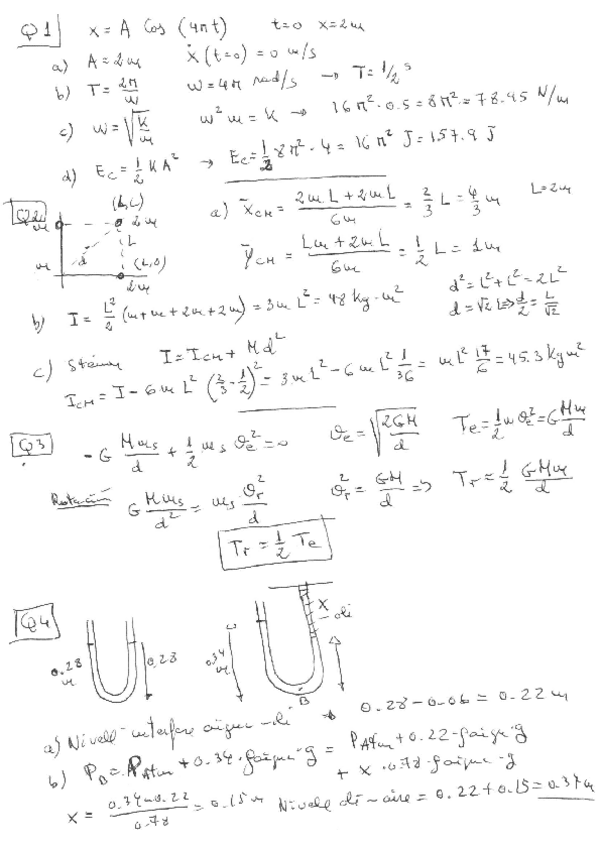 Q1 x = A cos (4πt) t=0 x=2m
a) A = 2m ẋ(t=0) = 0 m/s
b) T = 2π/ω ω = 4π rad/s → T = 1/2 s
c) ω = √(k/m) ω² m = k → 16π² · 0.5 = 8π² = 78.95 N/m
d) Ec = 1/2 K A² → Ec = 1/2 8π² · 4 = 16π² J = 157.9 J
Q2
(L,L)
m 2m
L
d
m (L,0)
2m
a) x̄CM = (2mL + 2mL)/6m = 2/3 L = 4/3 m L = 2m
ȳCM = (Lm + 2mL)/6m = 1/2 L = 1m
b) I = L²/2 (m + m + 2m + 2m) = 3mL² = 48 kg·m²
d² = L² + L² = 2L²
d = √2 L ⇒ d/2 = L/√2
c) Steiner I = ICM + Md²
ICM = I − 6mL² (2/3 − 1/2)² = 3mL² − 6mL² 1/36 = mL² 17/6 = 45.3 kg m²
Q3 −G Mms/d + 1/2 ms ve² = 0 ve = √(2GM/d) Te = 1/2 m ve² = G Mm/d
Rotación G Mms/d² = ms vr²/d vr² = GM/d ⇒ Tr = 1/2 GMm/d
Tr = 1/2 Te
Q4
0.28 m 0.28
0.34 m X oli
B
a) Nivell interfase aigua-oli → 0.28 − 0.06 = 0.22 m
b) PB = PAtm + 0.34 · ρaigua · g = PAtm + 0.22 · ρaigua · g
+ x · 0.78 · ρaigua · g
x = (0.34 − 0.22)/0.78 = 0.15 m Nivell oli-aire = 0.22 + 0.15 = 0.37 m